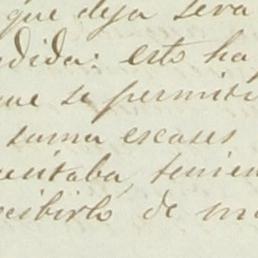 que deja será
dida: esto ha
que se permiti
suma escases
sitaba, tenien
cibirlo de m